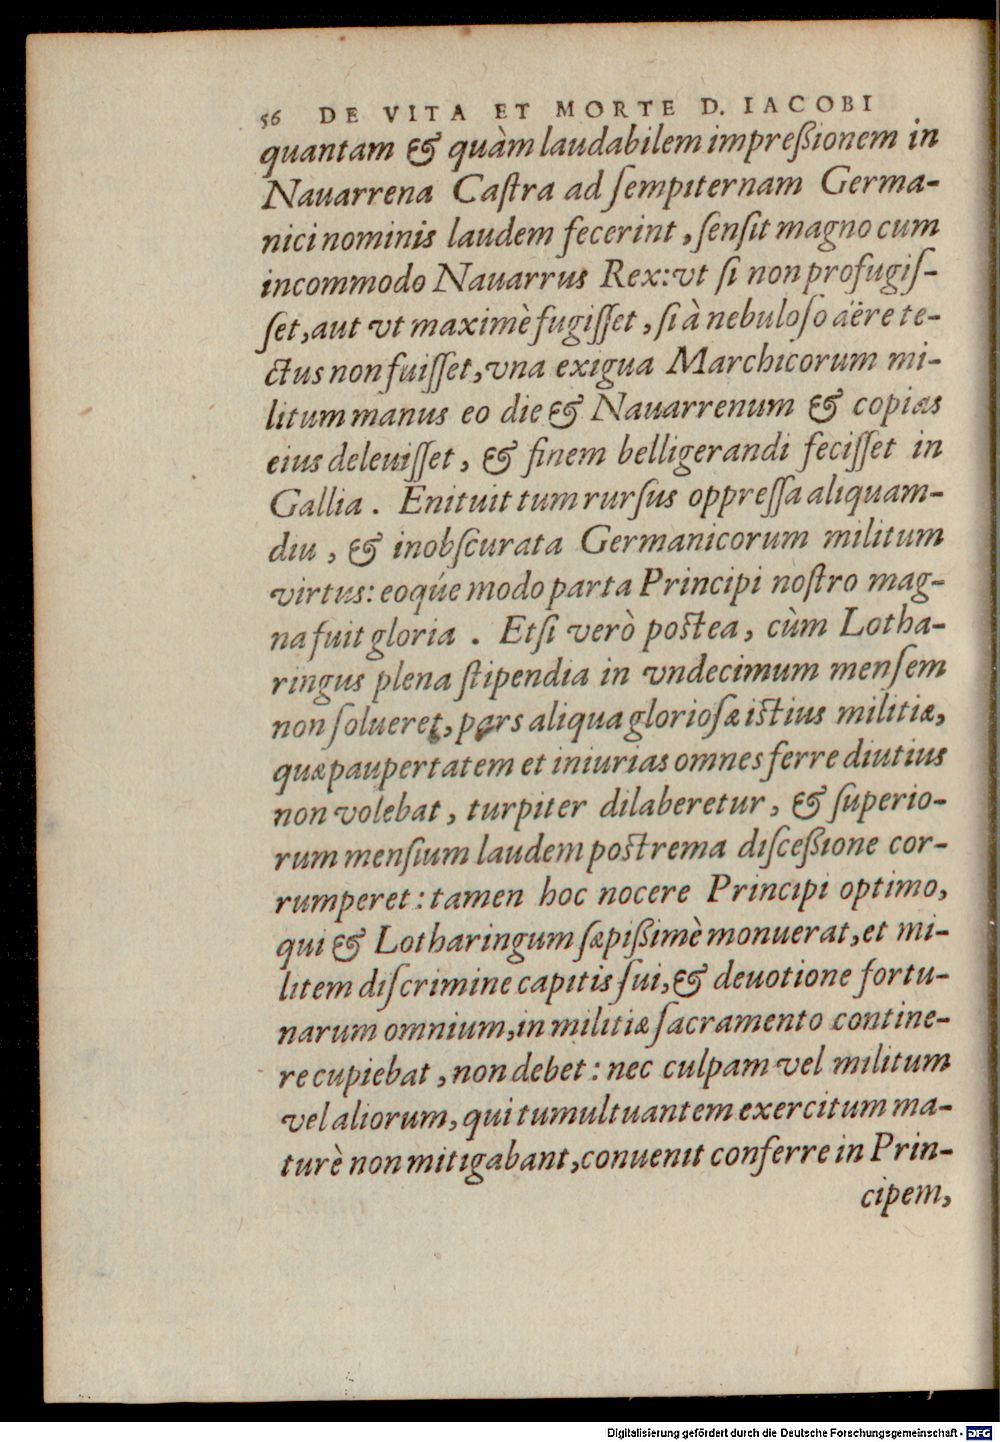 56 DE VITA ET MORTE D. IACOBI
quantam & quàm laudabilem impreßionem in
Nauarrena Castra ad ſempiternam Germa-
nici nominis laudem fecerint, ſenſit magno cum
incommodo Nauarrus Rex: vt ſi non profugiſ-
ſet, aut vt maximè fugiſſet, ſi à nebuloſo aëre te-
ctus non fuiſſet, vna exigua Marchicorum mi-
litum manus eo die & Nauarrenum & copias
eius deleuiſſet, & finem belligerandi feciſſet in
Gallia. Enituit tum rurſus oppreſſa aliquam-
diu, & inobſcurata Germanicorum militum
virtus: eoqúe modo parta Principi noſtro mag-
na fuit gloria. Etſi verò poſtea, cùm Lotha-
ringus plena ſtipendia in vndecimum menſem
non ſolueret, pars aliqua glorioſæ iſtius militiæ,
quæ paupertatem et iniurias omnes ferre diutius
non volebat, turpiter dilaberetur, & ſuperio-
rum menſium laudem poſtrema diſceßione cor-
rumperet: tamen hoc nocere Principi optimo,
qui & Lotharingum ſæpißimè monuerat, et mi-
litem diſcrimine capitis ſui, & deuotione fortu-
narum omnium, in militiæ ſacramento contine-
re cupiebat, non debet: nec culpam vel militum
vel aliorum, qui tumultuantem exercitum ma-
turè non mitigabant, conuenit conferre in Prin-
cipem,
Digitalisierung gefördert durch die Deutsche Forschungsgemeinschaft - DFG